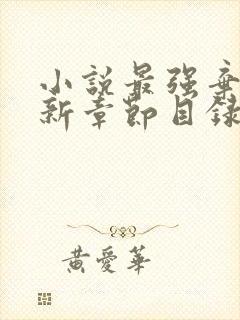 小說最强棄
新章節目錄
黃愛華